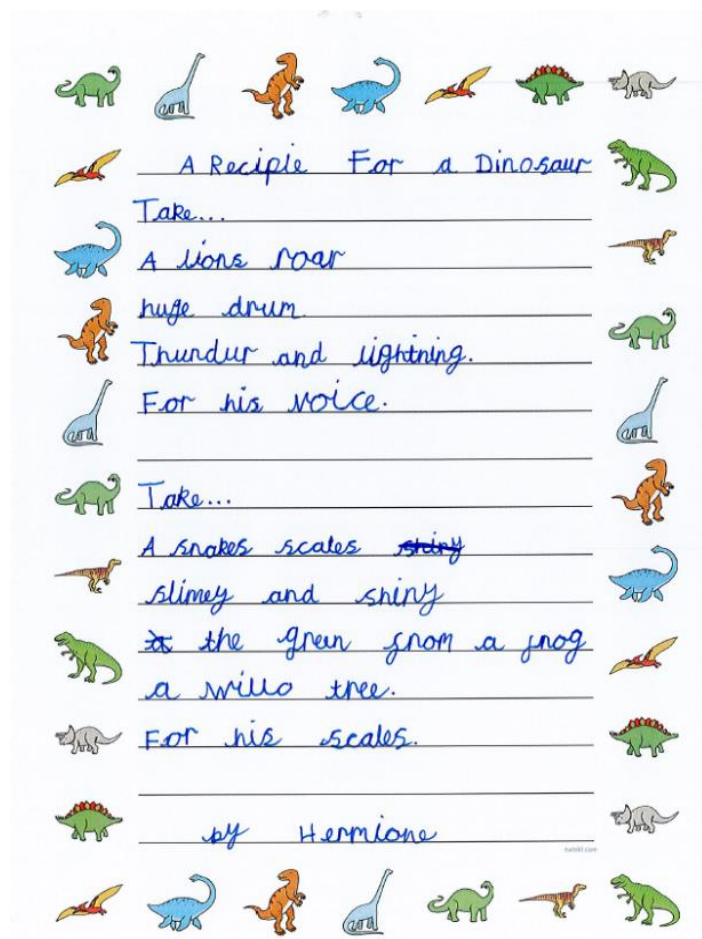 A Reciple For a Dinosaur
Take...
A lions roar
huge drum
Thundur and lightning.
For his voice.
Take...
A snakes scales shiny
slimey and shiny
the green from a frog
a willo tree.
For his scales.
by Hermione
twinkl.com